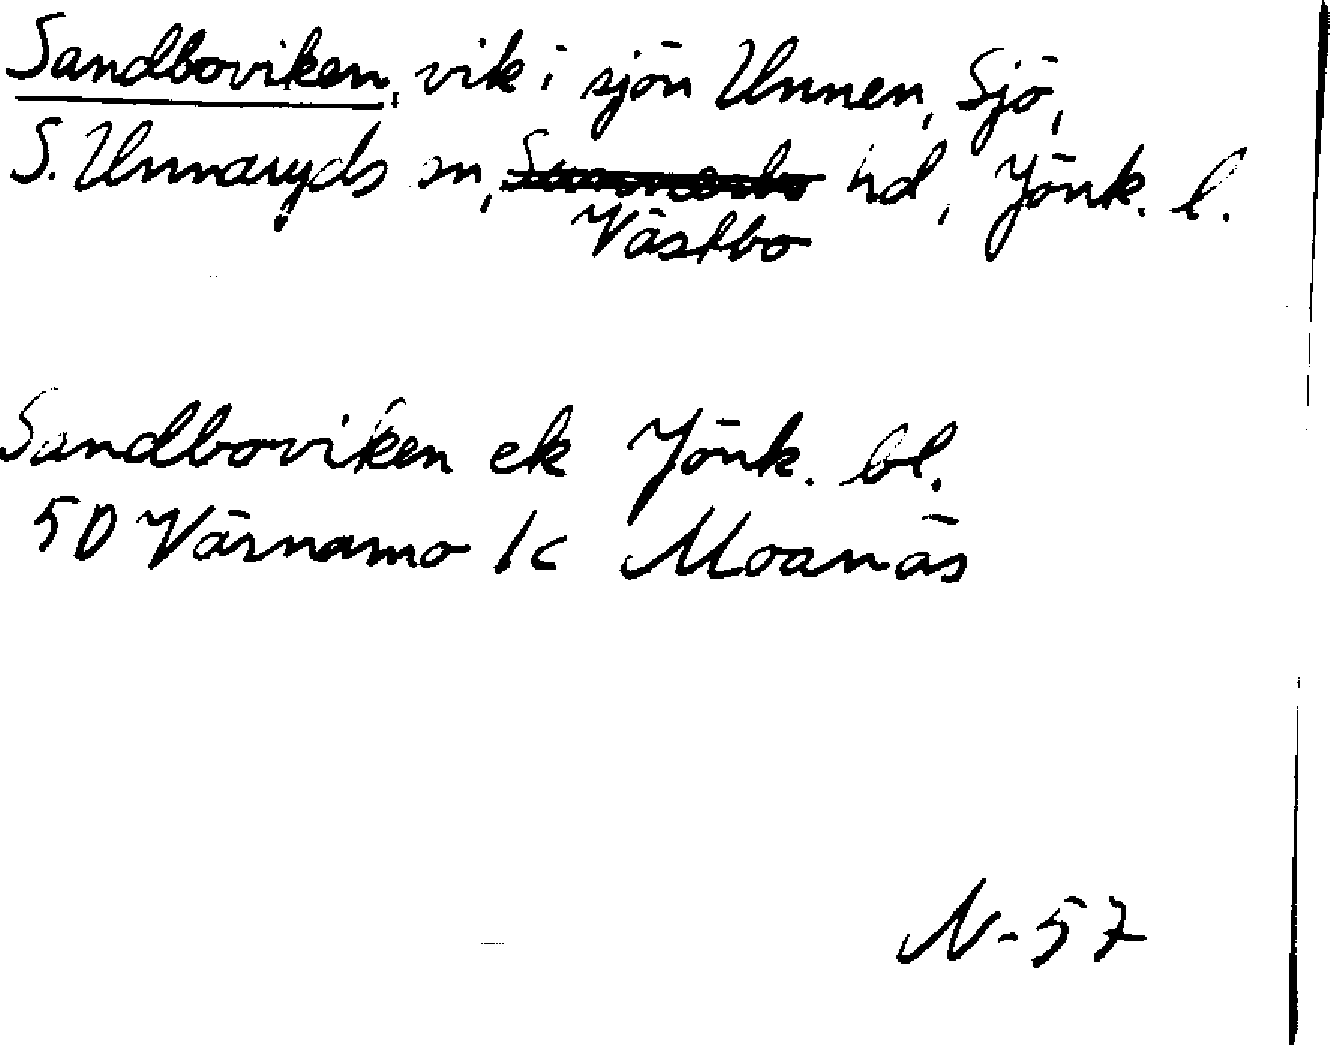 Sandboviken, vik i sjön Unnen, Sjö,
S. Unnaryds sn, Sunnerbo hd, Jönk. l.
Västbo
Sandboviken ek Jönk. bl.
50 Värnamo 1c Moanäs
N-57